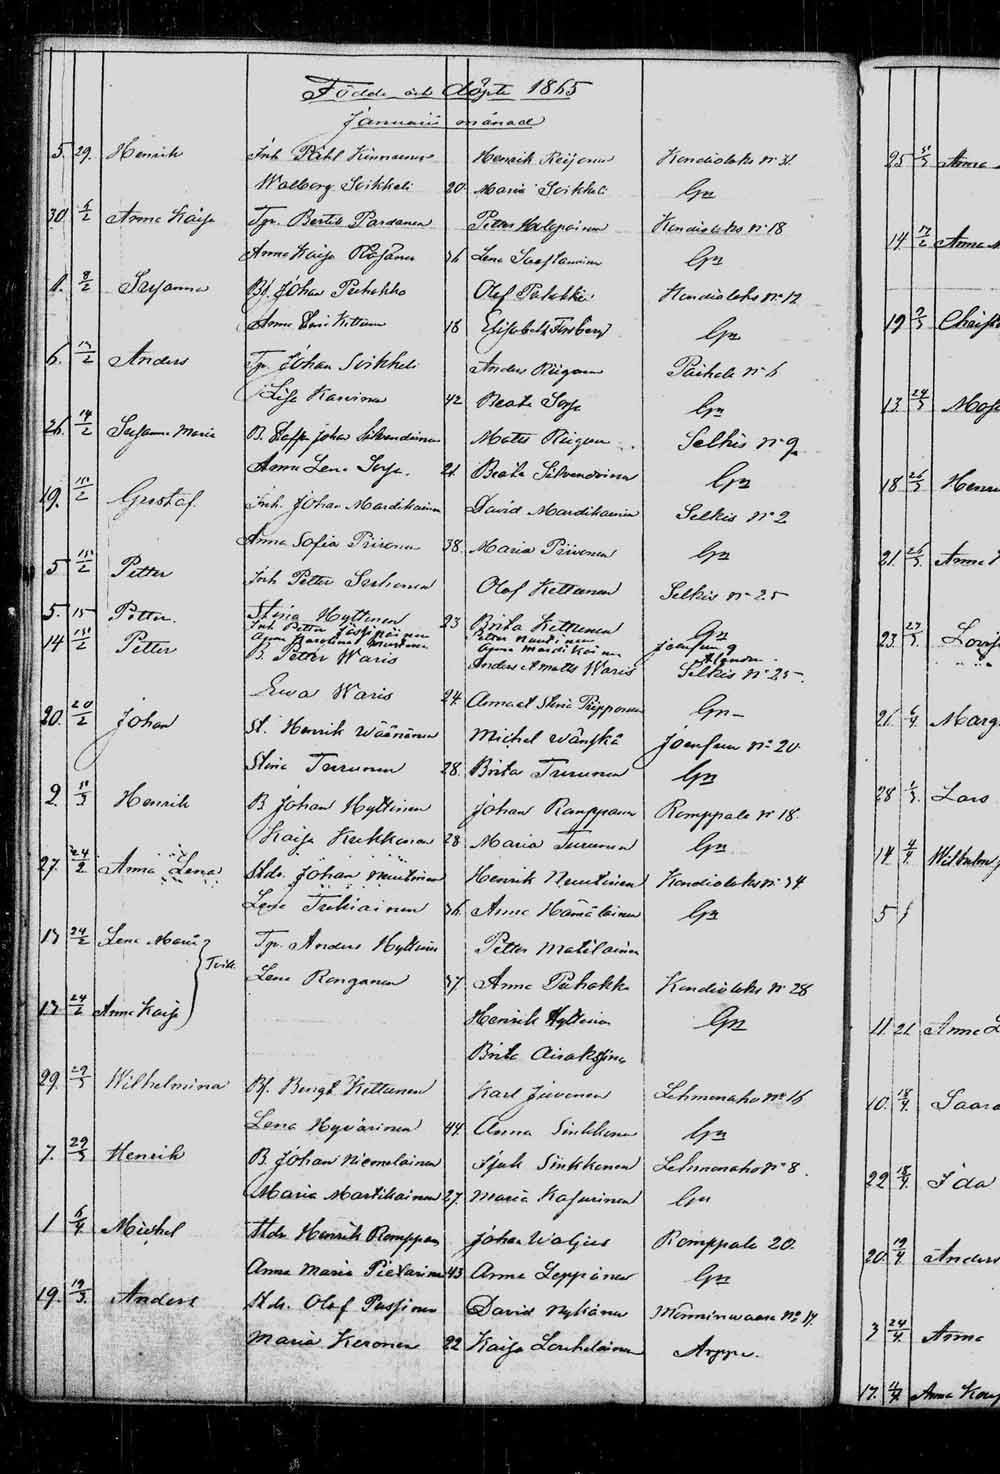 Födde och Döpte 1865
Januarii månad
5. 29. Henrik Inh. Påhl Kinnunen Henrik Reijonen Kondiolaks No 31
Walborg Soikkeli 20 Maria Soikkeli Gn
30. 5/2 Anna Kaisa Tp. Bertil Pardanen Petter Kondiolaks No 18
Anna Kaisa Räsänen 36 Lena Gn
1. 8/2 Susanna Bf. Johan Puhakka Olof Puhakka Kondiolaks No 12
Anna Kettunen 18 Elisabeth Forsberg Gn
6. 12/2 Anders Tp. Johan Soikkeli Anders Riigonen Paihola No 6
Lisa Karvinen 42 Beata Sorsa Gn
26. 14/2 Susanna Maria B. Staffan Johan Silvendoinen Matts Riigonen Selkis No 9
Anna Lena Sorsa 21 Beata Silvendoinen Gn
19. 15/2 Gustaf Inh. Johan Mardikainen David Mardikainen Selkis No 2
Anna Sofia Piironen 38. Maria Piironen Gn
5 15/2 Petter Inh Petter Olof Kettunen Selkis No 25
Stina Hyttinen 23 Brita Kettunen Gn
5. 15 Petter. Inh Petter Petter Nuutinen Joensuu 9
Anna Karolina Nuutinen Anna Mardikainen
14 15/2 Petter B. Petter Waris Anders & Matts Waris Selkis No 25.
Ewa Waris 24. Anna et Stina Pipponen Gn
20. 20/2 Johan St. Henrik Wäänänen Michel Wänskä Joensuu No 20
Stina Turunen 28. Brita Turunen Gn
2. 11/3 Henrik B Johan Hyttinen Johan Romppanen Romppala No 18.
Kaisa Kukkonen 28 Maria Turunen Gn
27. 24/2 Anna Lena Stdr. Johan Nuutinen Henrik Nuutinen Kondiolaks No 34
Lena Tukiainen 36 Anna Hämäläinen Gn
13 24/2 Lena Maria Tvill. Tp. Anders Hyttinen Petter Matilainen
Lena Ronganen 37. Anna Puhakka Kondiolaks No 28
13 24/2 Anna Kaisa Henrik Hyttinen Gn
Brita Airaksina
29. 29/3 Wilhelmina Bf. Bengt Kettunen Karl Juvonen Lehmonaho No 16
Lena Hyvärinen 44. Anna Sinkkonen Gn
7. 29/3 Henrik B. Johan Niemeläinen Isak Sinkkonen Lehmonaho No 8.
Maria Martikainen 27. Maria Kajurinen Gn
1 6/4 Michel Stdr Henrik Romppan Johan Waljus Romppala 20.
Anna Maria Pietarinen 43 Anna Leppänen Gn
19. 19/3. Anders Stdr. Olof Pussinen David Nykänen Mönninwaara No 17.
Maria Keronen 22 Kaisa Louhelainen Arppe.
25 31/3 Anna
14. 12/2 Anna
19 Christ
13. 24/3 Mos
18 26/3 Henri
21. 26/3. Anna
23. 27/3. Lovis
21. 6/4. Marg
28 1/3. Lars
14. 4/4. Wilhelm
5
11. 21. Anna L
10. 18/4. Saara
22 18/4. Ida
20. 19/4. Anders
3 24/4. Anna
17. Anna